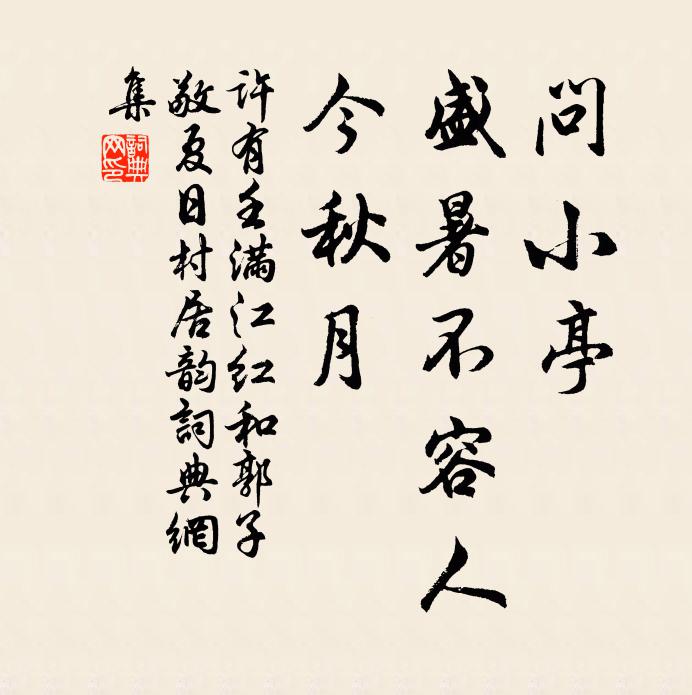 問小亭
盛暑不容人
今秋月
許有壬滿江紅和郭子
敬夏日村居韵詞典網
集
詞典
网印